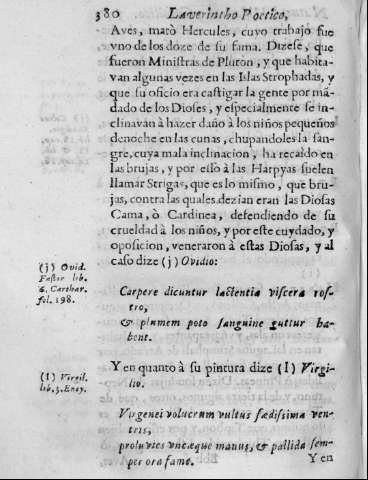 380 Laverintho Poetico,
Aves, matò Hercules, cuyo trabajo fue
vno de los doze de su fama. Dizese, que
fueron Ministras de Pluton, y que habita-
van algunas vezes en las Islas Strophadas, y
que su oficio era castigar la gente por mã-
dado de los Dioses, y especialmente se in-
clinavan à hazer daño à los niños pequeños
denoche en las cunas, chupandoles la san-
gre, cuya mala inclinacion, ha recaido en
las brujas, y por esso à las Harpyas suelen
llamar Strigas, que es lo mismo, que bru-
jas, contra las quales dezian eran las Diosas
Carna, ò Cardinea, defendiendo de su
crueldad à los niños, y por este cuydado, y
oposicion, veneraron à estas Diosas, y al
caso dize (j) Ovidio:
(j) Ovid.
Fastor lib.
6. Carthar.
fol. 198.
Carpere dicuntur lactentia viscera ros-
tro,
& plumem poto sanguine guttur ha-
bent.
Y en quanto à su pintura dize (l) Virgi-
lio.
(l) Virgil.
lib. 3. Eney.
Virgenei volucrum vultus fædissima ven-
tris,
proluvies vncæque manus, & pallida sem-
per ora fame.
Y en